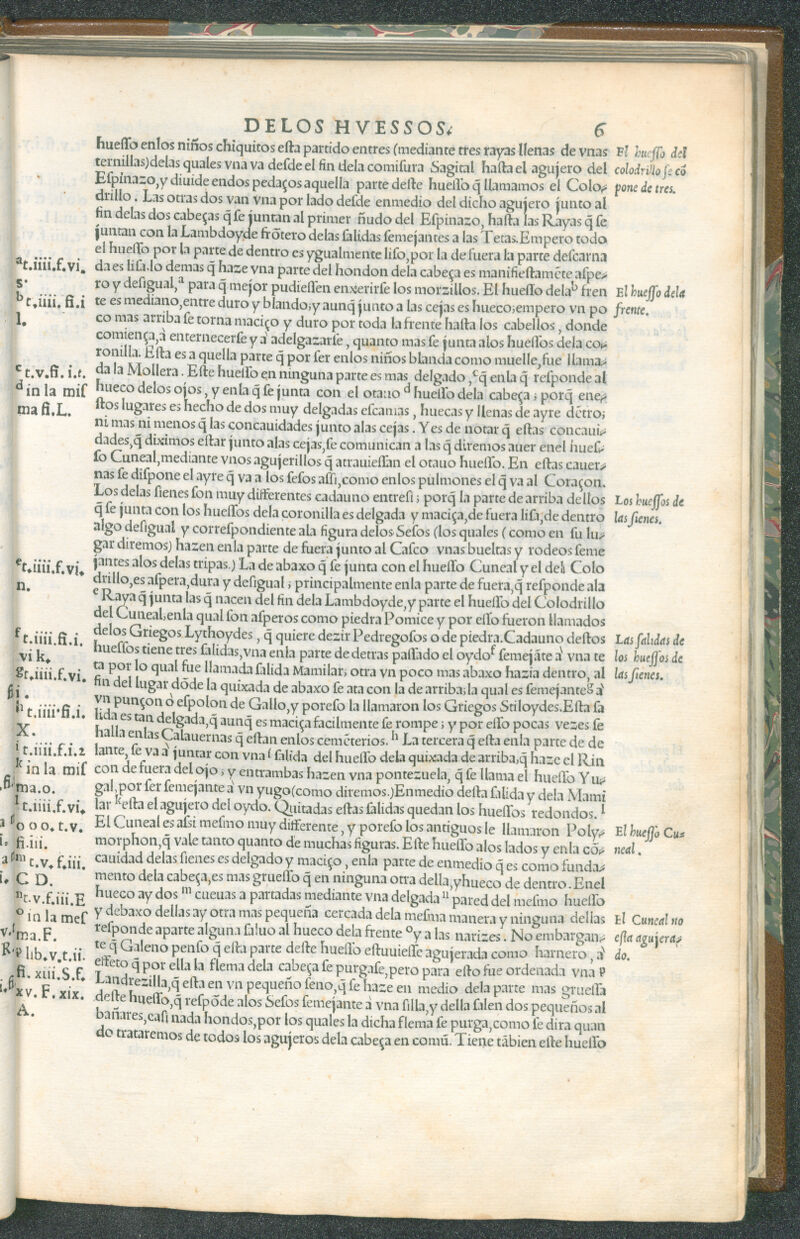 DELOS HVESSOS.
6
huesso enlos niños chiquitos esta partido entres (mediante tres rayas llenas de vnas
ternillas) delas quales vna va desde el fin dela comisura Sagital hasta el agujero del
Espinazo, y diuide endos pedaços aquella parte deste huesso q̃ llamamos el Colo-
drillo. Las otras dos van vna por lado desde enmedio del dicho agujero junto al
fin delas dos cabeças q̃ se juntan al primer ñudo del Espinazo, hasta las Rayas q̃ se
juntan con la Lambdoyde frõtero delas salidas semejantes a las Tetas. Empero todo
el huesso por la parte de dentro es ygualmente liso, por la de fuera la parte descarna
da es lisa. lo demas q̃ haze vna parte del hondon dela cabeça es manifiestamẽte aspe-
ro y desigual, ᵃ para q̃ mejor pudiessen enxerirse los morzillos. El huesso dela ᵇ fren
te es mediano, entre duro y blando; y aunq̃ junto a las cejas es hueco; empero vn po
co mas arriba se torna maciço y duro por toda la frente hasta los cabellos, donde
comiença, à enternecerse y a adelgazarse, quanto mas se junta alos huessos dela co-
ronilla. Esta es a quella parte q̃ por ser enlos niños blanda como muelle, fue llama-
da la Mollera. Este huesso en ninguna parte es mas delgado, ᶜ q̃ enla q̃ responde al
hueco delos ojos, y enla q̃ se junta con el otauo ᵈ huesso dela cabeça; porq̃ ene-
stos lugares es hecho de dos muy delgadas escamas, huecas y llenas de ayre dẽtro;
ni mas ni menos q̃ las concauidades junto alas cejas. Y es de notar q̃ estas concaui-
dades, q̃ diximos estar junto alas cejas, se comunican a las q̃ diremos auer enel hues-
so Cuneal, mediante vnos agujerillos q̃ atrauiessan el otauo huesso. En estas cauer-
nas se dispone el ayre q̃ va a los sesos assi, como enlos pulmones el q̃ va al Coraçon.
Los delas sienes son muy differentes cadauno entresi; porq̃ la parte de arriba dellos
q̃ se junta con los huessos dela coronilla es delgada y maciça, de fuera lisa, de dentro
algo desigual y correspondiente ala figura delos Sesos (los quales (como en su lu-
gar diremos) hazen enla parte de fuera junto al Casco vnas bueltas y rodeos seme
jantes alos delas tripas.) La de abaxo q̃ se junta con el huesso Cuneal y el del Colo
drillo, es aspera, dura y desigual; principalmente enla parte de fuera, q̃ responde ala
ᵉ Raya q̃ junta las q̃ nacen del fin dela Lambdoyde, y parte el huesso del Colodrillo
del Cuneal, enla qual son asperos como piedra Pomice y por esso fueron llamados
delos Griegos Lythoydes, q̃ quiere dezir Pedregosos o de piedra. Cadauno destos
huessos tiene tres salidas, vna enla parte de detras passado el oydo ᶠ semejãte à vna te
ta por lo qual fue llamada salida Mamilar, otra vn poco mas abaxo hazia dentro, al
fin del lugar dõde la quixada de abaxo se ata con la de arriba; la qual es semejante ᵍ à
vn punçon ò espolon de Gallo, y poresso la llamaron los Griegos Stiloydes. Esta sa
lida es tan delgada, q̃ aunq̃ es maciça facilmente se rompe; y por esso pocas vezes se
halla enlas Calauernas q̃ estan enlos cemẽterios. ʰ La tercera q̃ esta enla parte de de
lante, se va à juntar con vna ⁱ salida del huesso dela quixada de arriba, q̃ haze el Rin
con de fuera del ojo, y entrambas hazen vna pontezuela, q̃ se llama el huesso Yu-
gal, por ser semejante à vn yugo (como diremos.) Enmedio desta salida y dela Mami
lar ᵏ esta el agujero del oydo. Quitadas estas salidas quedan los huessos redondos. ˡ
El Cuneal es assi mesmo muy differente, y poreso los antiguos le llamaron Poly-
morphon, q̃ vale tanto quanto de muchas figuras. Este huesso alos lados y enla cõ-
cauidad delas sienes es delgado y maciço, enla parte de enmedio q̃ es como funda-
mento dela cabeça, es mas gruesso q̃ en ninguna otra della, y hueco de dentro. Enel
hueco ay dos ᵐ cueuas a partadas mediante vna delgada ⁿ pared del mesmo huesso
y debaxo dellas ay otra mas pequeña cercada dela mesma manera y ninguna dellas
responde aparte alguna saluo al hueco dela frente ᵒ y a las narizes. No embargan-
te q̃ Galeno penso q̃ esta parte deste huesso estuuiesse agujerada como harnero, à
effeto q̃ por ella la flema dela cabeça se purgase, pero para esto fue ordenada vna ᵖ
Landrezilla, q̃ esta en vn pequeño seno, q̃ se haze en medio dela parte mas gruessa
deste huesso, q̃ respõde alos Sesos semejante à vna silla, y della salen dos pequeños al
bañares, casi nada hondos, por los quales la dicha flema se purga, como se dira quan
do trataremos de todos los agujeros dela cabeça en comũ. Tiene tãbien este huesso
El huesso del
colodrillo se cõ
pone de tres.
El huesso dela
frente.
Los huessos de
las sienes.
Las salidas de
los huessos de
las sienes.
El huesso Cu-
neal.
El Cuneal no
esta agujera-
do.
ᵃ t.iiii.f.vi.
s.
ᵇ t.iiii.fi.i
l.
ᶜ t.v.fi.i.t.
ᵈ in la mis
ma fi.L.
ᵉ t.iiii.f.vi.
n.
ᶠ t.iiii.fi.i.
vi k.
ᵍ t.iiii.f.vi.
fi.
ʰ t.iiii.fi.i.
X.
ⁱ t.iiii.f.i.2
ᵏ in la mis
ma.o.
ˡ t.iiii.f.vi.
o o o. t.v.
fi.iii.
ᵐ t.v.f.iii.
C D.
ⁿ t.v.f.iii.E
ᵒ in la mes
ma.F.
ᵖ lib.v.t.ii.
fi.xiii.S.f.
xv.F.xix.
A.